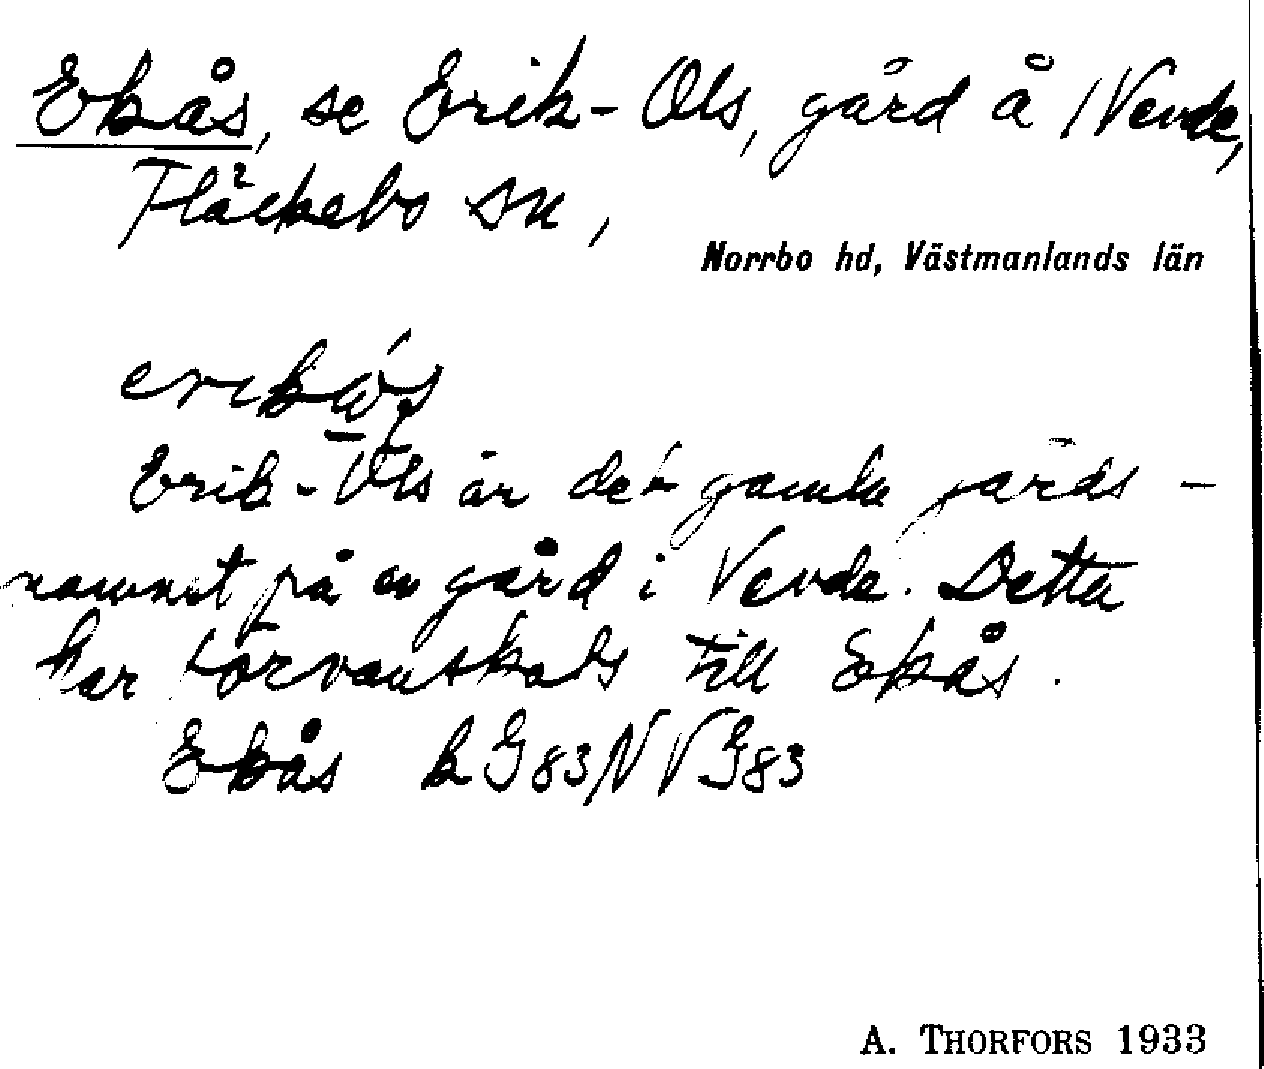 Ekås, se Erik-Ols, gård å Vevde,
Fläckebo sn,
Norrbo hd, Västmanlands län
Erik-Ols är det gamla gårds-
namnet på en gård i Vevde. Detta
har förvanskats till Ekås.
Ekås
A. THORFORS 1933